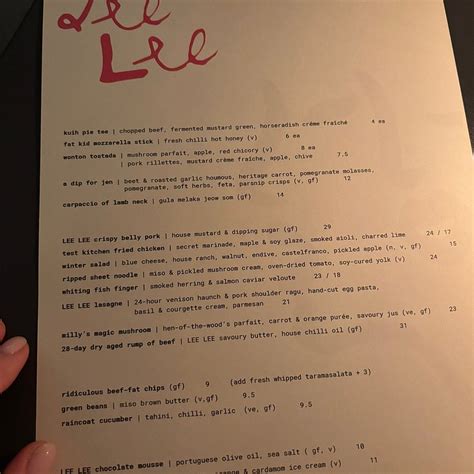 Lee
Lee
kuih pie tee | chopped beef, fermented mustard green, horseradish crème fraîché 4 ea
fat kid mozzarella stick | fresh chilli hot honey (v) 6 ea
wonton tostada | mushroom parfait, apple, red chicory (v) 8 ea
| pork rillettes, mustard crème fraîche, apple, chive 7.5
a dip for jen | beet & roasted garlic houmous, heritage carrot, pomegranate molasses,
pomegranate, soft herbs, feta, parsnip crisps (v, gf) 12
carpaccio of lamb neck | gula melaka jeow som (gf) 14
LEE LEE crispy belly pork | house mustard & dipping sugar (gf) 29
test kitchen fried chicken | secret marinade, maple & soy glaze, smoked aioli, charred lime 24 / 17
winter salad | blue cheese, house ranch, walnut, endive, castelfranco, pickled apple (n, v, gf) 15
ripped sheet noodle | miso & pickled mushroom cream, oven-dried tomato, soy-cured yolk (v) 24
whiting fish finger | smoked herring & salmon caviar veloute 23 / 18
LEE LEE lasagne | 24-hour venison haunch & pork shoulder ragu, hand-cut egg pasta,
basil & courgette cream, parmesan 21
willy's magic mushroom | hen-of-the-wood's parfait, carrot & orange purée, savoury jus (ve, gf) 23
28-day dry aged rump of beef | LEE LEE savoury butter, house chilli oil (gf) 31
ridiculous beef-fat chips (gf) 9 (add fresh whipped taramasalata + 3)
green beans | miso brown butter (v,gf) 9.5
raincoat cucumber | tahini, chilli, garlic (ve, gf) 9.5
LEE LEE chocolate mousse | portuguese olive oil, sea salt ( gf, v) 10
orange & cardamom ice cream (v) 11